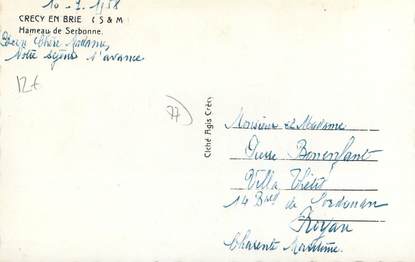 10-9-1958
CRECY EN BRIE (S & M)
Hameau de Serbonne.
Chère Madame,
Notre séjour s'avance
12€
77
Cliché Agis Crécy
Monsieur et Madame
Pierre Bonenfant
Villa Thétis
14 Bard de Cordouan
Royan
Charente Maritime.